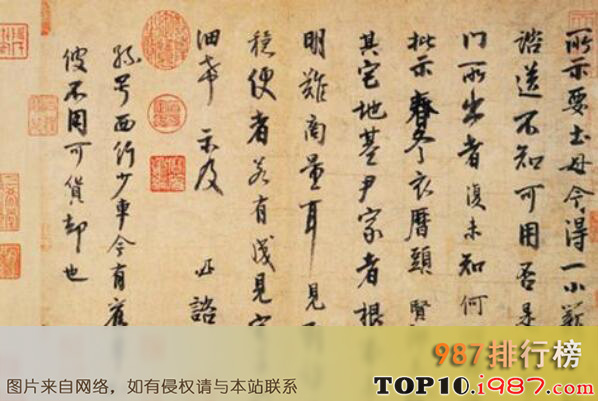 所示要土母今得一小
諮送不知可用否是
門所出者復未知何
批示春冬衣曆頭賢
其宅地基尹家者根
明難商量耳見
穩便者若有成見宅
細希 示及 必諮
孫号西行少車今有舊
彼不用可貨却也
987排行榜
图片来自网络，如有侵权请与本站联系
TOP10.1987.com